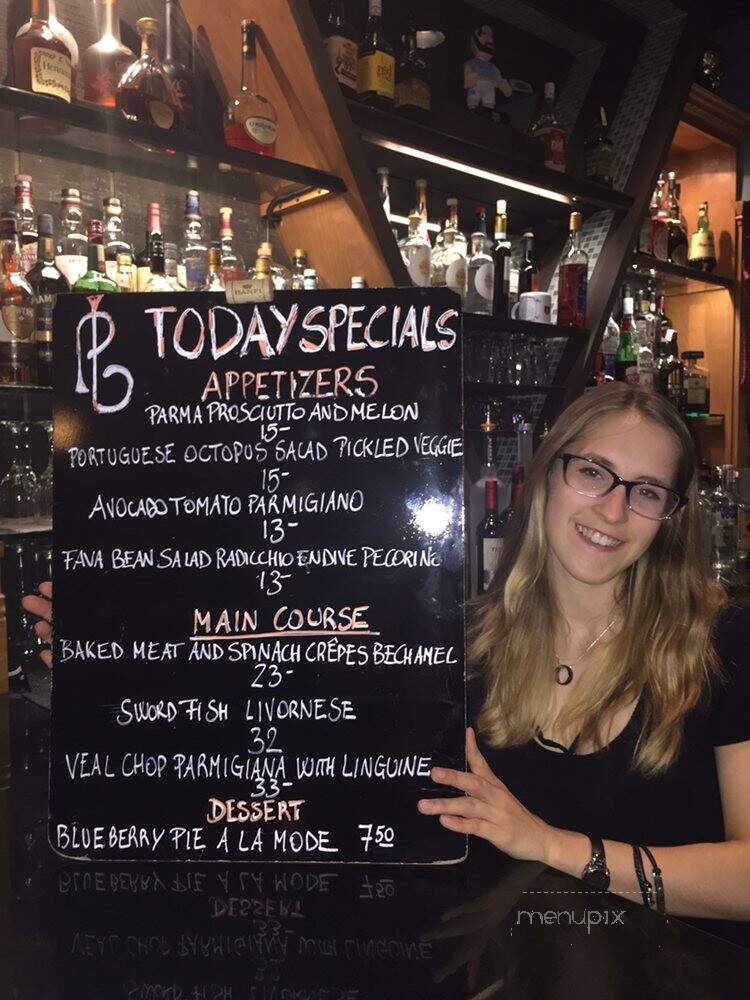 PL
TODAY SPECIALS
APPETIZERS
PARMA PROSCIUTTO AND MELON
15-
PORTUGUESE OCTOPUS SALAD PICKLED VEGGIE
15-
AVOCADO TOMATO PARMIGIANO
13-
FAVA BEAN SALAD RADICCHIO ENDIVE PECORINO
13-
MAIN COURSE
BAKED MEAT AND SPINACH CRÊPES BECHAMEL
23-
SWORD FISH LIVORNESE
32
VEAL CHOP PARMIGIANA WITH LINGUINE
33-
DESSERT
BLUEBERRY PIE A LA MODE 7.50
menupix